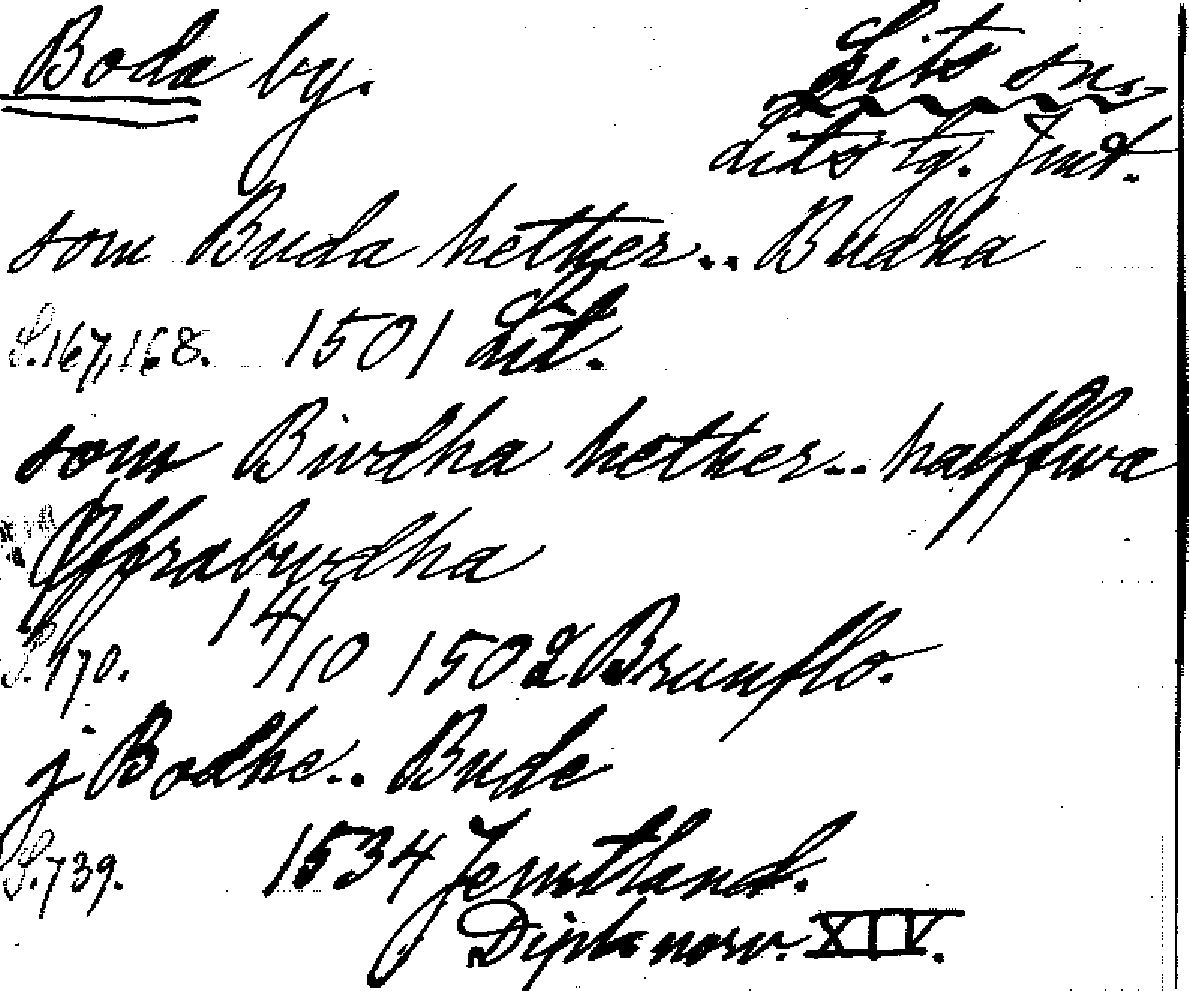 Boda by.
Lits sn.
Lits tg. Jmt.
som Buda hether.. Budha
S.167,168. 1501 Lit.
som Bwdha hether.. halffwa
Offrabwdha
S.170. 14/10 1502 Brunflo.
j Bodhe.. Bude
S.739. 1534 Jemtland.
Dipl. norv. XIV.